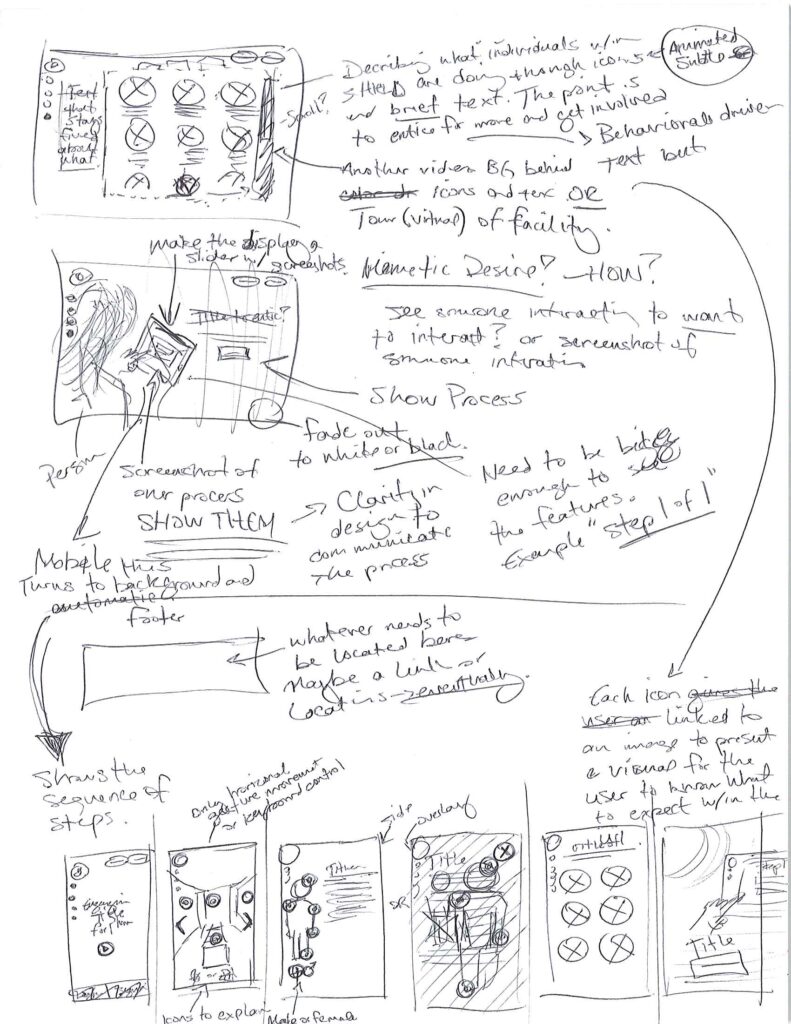 Decribing what individuals w/in
SHIELD are doing though icons
and brief text. The point is
to entice for more and get involved
Animated
Subtle
Behavioral driven
text but
Text
that
stays
fixed
about
what
Scroll?
Another video BG behind
icons and text OR
Tour (virtual) of facility.
make the display a
slider w/ screenshots
Mametic Desire? - HOW?
see somone interacting to want
to interact? or screenshot of
somone interating
Show Process
fade out
to white or black.
Person
Screenshot of
our process
SHOW THEM
Clarity in
design to
communicate
the process
Need to be big
enough to see
the features.
Example "Step 1 of 1"
Mobile this
Turns to background and
footer
whatever needs to
be located here
Maybe a link or
Locations
Each icon
linked to
an image to present
a visual for the
user to know what
to expect w/in the
Shows the
sequence of
steps.
only horizonal
gesture movement
or keyboard control
side
overlay
Title
OR
Title
Icons to explain
Male or female